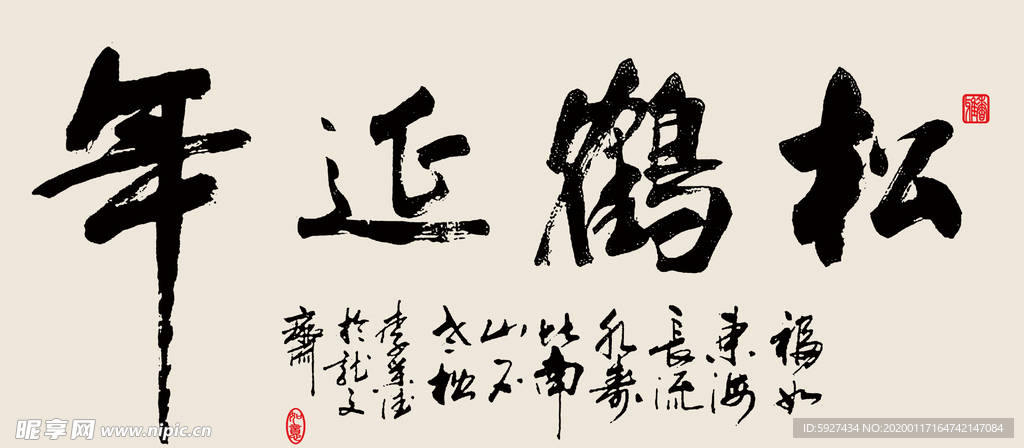 松鶴延年
福如
東海
長流
水壽
比南
山不
老松
於龍文
齋
昵享网 www.nipic.cn
ID:5927434 NO:20200117164742147084